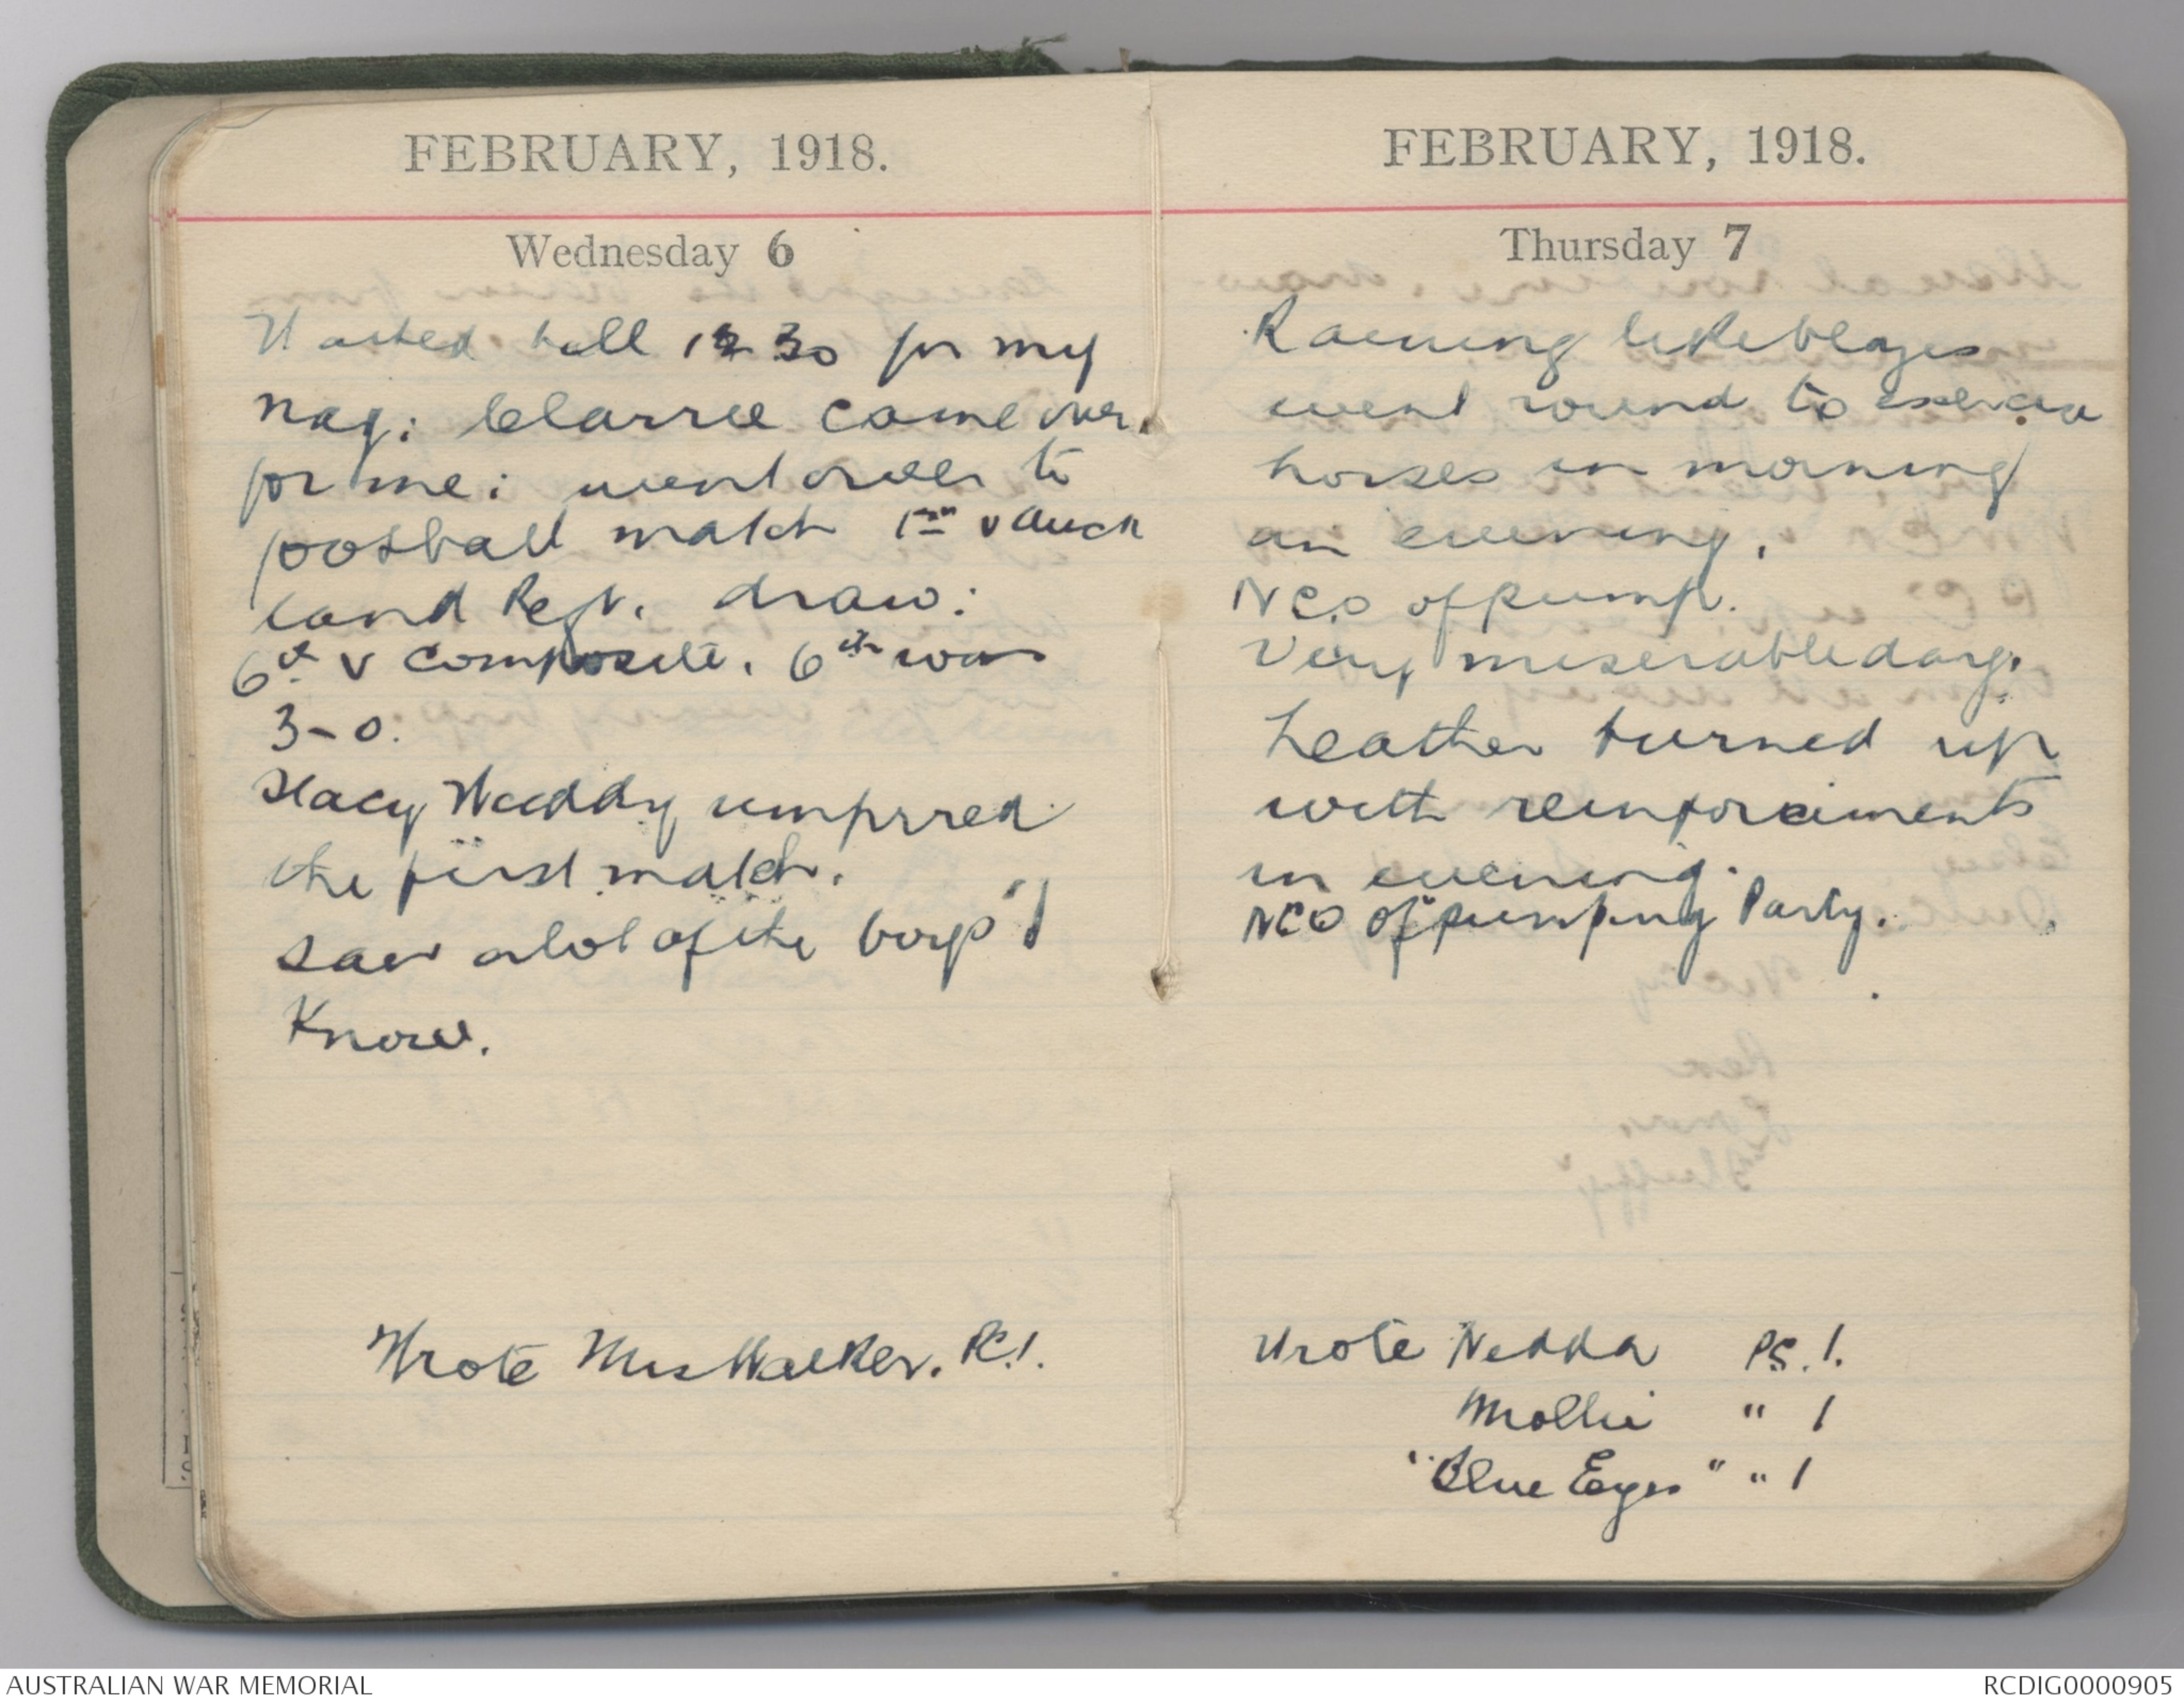 FEBRUARY, 1918.
Wednesday 6
Waited till 12 30 for my
nag: Clarrie came over
for me: went over to
football match 1st v Auck
land Regt. draw:
6th v Composite. 6th won
3-0.
Stacy Waddy umpired
the first match.
saw a lot of the boys I
know.
Wrote Mrs Walker. P.C. 1.
FEBRUARY, 1918.
Thursday 7
Raining like blazes
went round to exercise
horses in morning
an evening.
NCO of pump.
Very miserable day.
Leather turned up
with reinforcements
in evening.
NCO of pumping Party.
Wrote Nedda PS. 1.
Mollie " 1
"Blue Eyes" " 1
AUSTRALIAN WAR MEMORIAL
RCDIG0000905